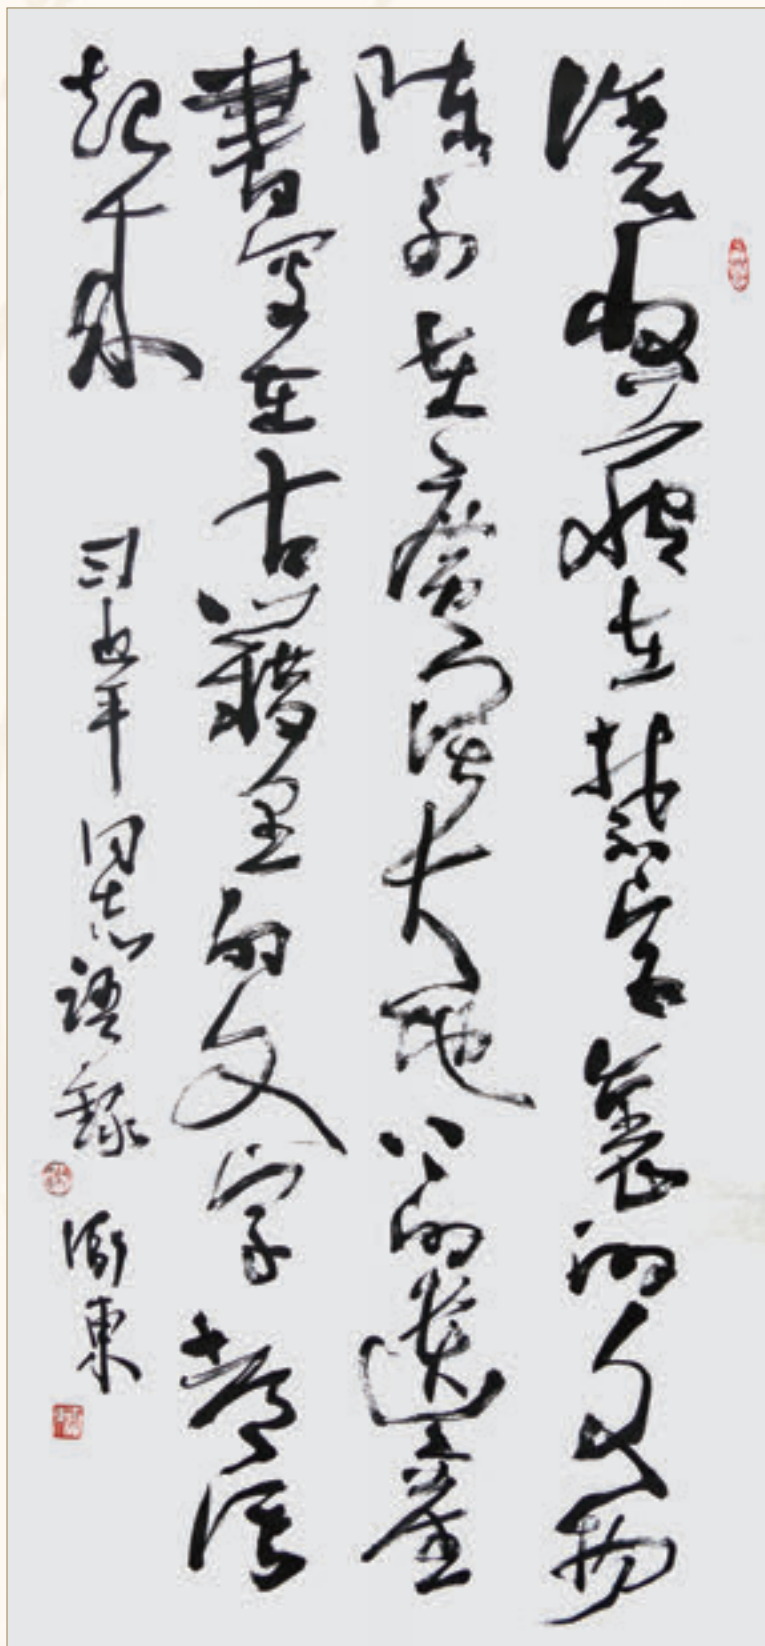 讓收藏在禁宮裏的文物
陳列在廣闊大地上的遺產
書寫在古籍里的文字都活
起來 习近平同志語錄 衛東